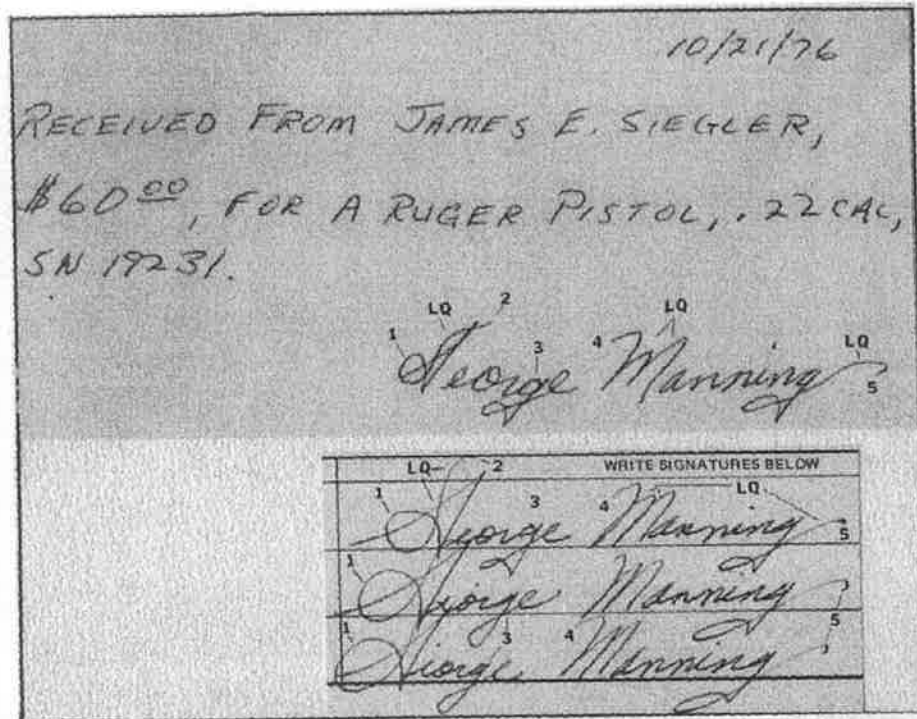 10/21/76
RECEIVED FROM JAMES E. SIEGLER,
$60 00, FOR A RUGER PISTOL, .22 CAL,
SN 19231.
LQ 2 LQ
1 3 4 LQ
George Manning 5
LQ 2 WRITE SIGNATURES BELOW
1 3 4 LQ
George Manning 5
1
George Manning
1 3 4 5
George Manning